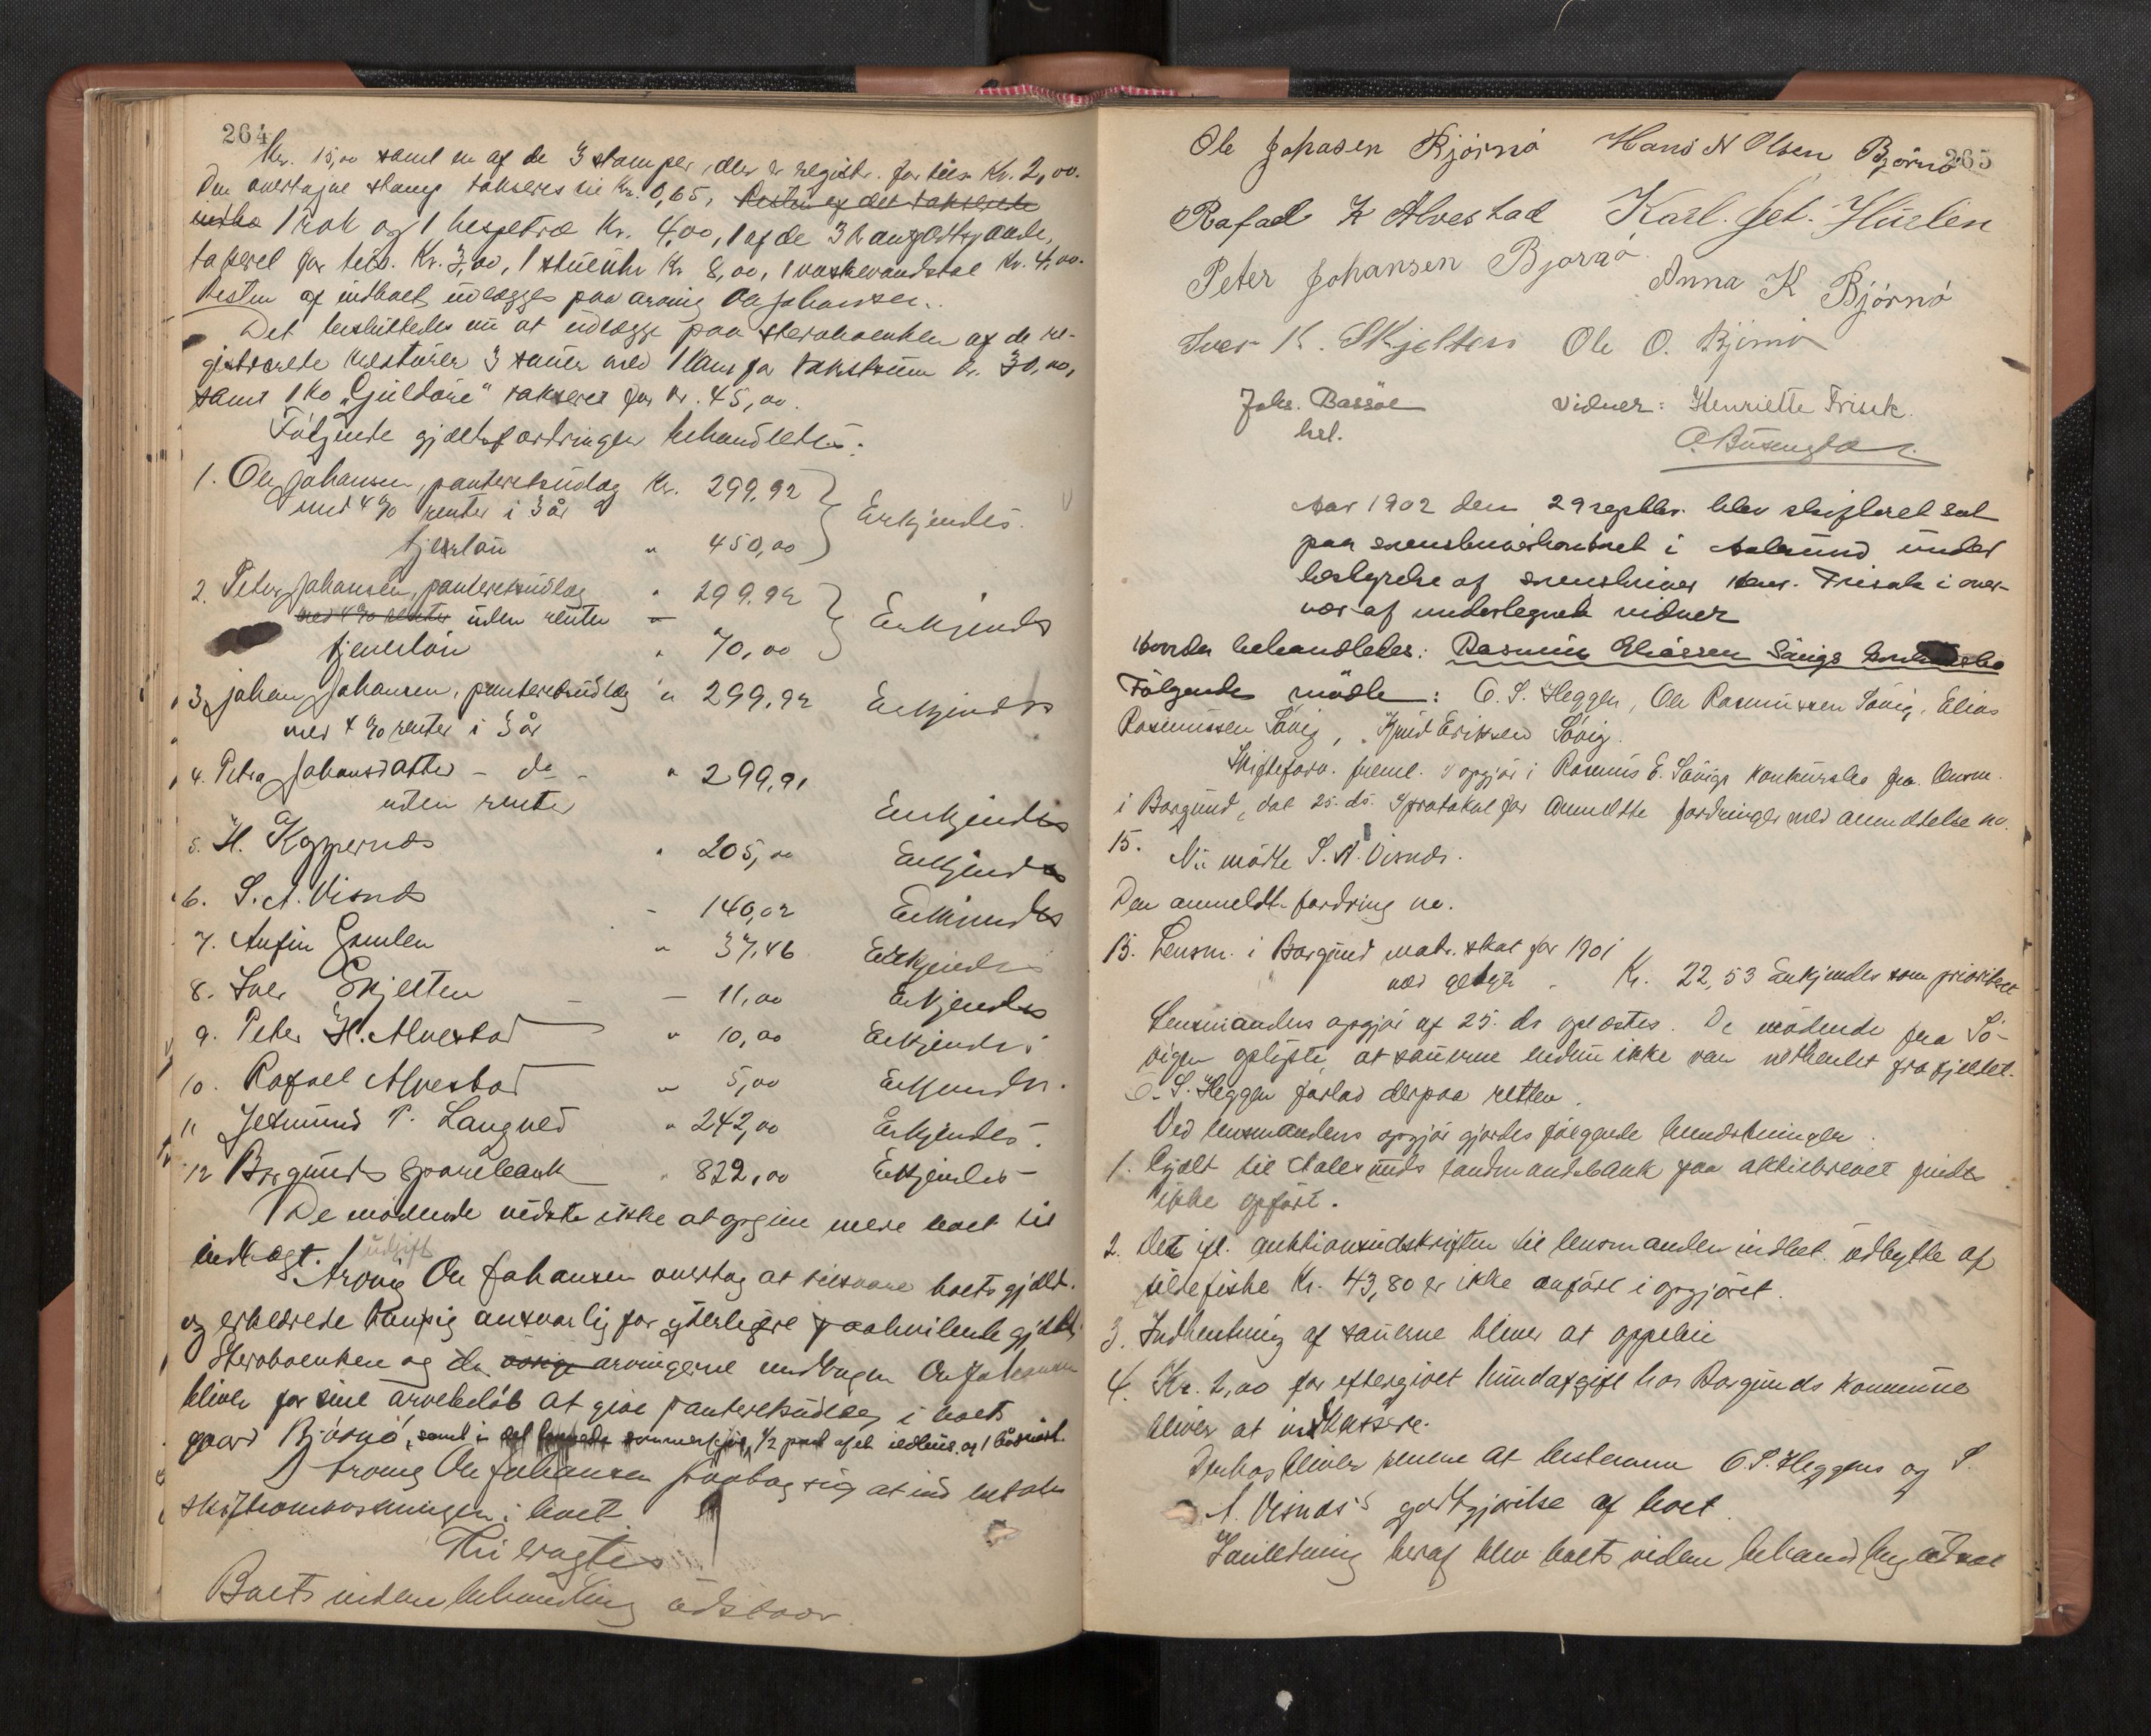 264
Kr. 15,00 samt en af de 3 stamper, der er registr. for tils. Kr. 2,00.
Den overtagne stamp takseres til Kr. 0,65, Resten af det takserede
indbo 1 rok og 1 hespetræ Kr. 4,00, 1 af de 3
takseret for tils. Kr. 3,00, 1 stueuhr Kr 8,00, 1 Kr. 4,00.
Resten af indboet udlægges paa arving Ole Johansen.
Det besluttedes nu at udlægge paa sterboenken af de re-
gistrerede kreaturer 3 sauer med 1 lam for takstsum Kr. 30,00,
samt 1 ko "Guldore" takseret for Kr. 45,00.
Følgende gjældsfordringer behandledes:
1. Ole Johansen, panteretsudlæg Kr. 299,92
med 4 % renter i 3 år
Erkjendes.
tjenerløn " 450,00
2. Peter Johansen, panteretsudlæg " 299,92
med 4 % renter uden renter
Erkjendes
tjenerløn " 70,00
3. Johan Johansen, panteretsudlæg " 299,92 Erkjendes
med 4 % renter i 3 år
4. Petra Johansdatter - do - " 299,91
uden renter Erkjendes
5. H. Koppernæs " 205,00 Erkjendes
6. S. A. Visnæs - 140,02 Erkjendes
7. Anfin Gamlem " 37,46 Erkjendes
8. Iver Skjelten - 11,00 Erkjendes
9. Peter H. Alvestad " 10,00 Erkjendes
10. Rafael Alvestad " 5,00 Erkjendes.
11 Jetmund P. Langved " 242,00 Erkjendes.
12 Borgunds sparebank " 822,00 Erkjendes
De mødende vidste ikke at opgive mere boet til
indtægt. udgift
Arving Ole Johansen overtog at tilsvare boets gjæld.
og erklærede han sig ansvarlig for yderligere paahvilende gjæld.
Sterboenken og de øvrige arvingerne undtagen Ole Johansen
bliver for sine arvebeløb at give panteretsudlæg i boets
gaard Bjørnø, samt i sommerfjøs, 1/2 part af et ildhus og 1 baadnøst.
Arving Ole Johansen paatog sig at indbetale
skifteomkostningen i boet
Thi eragtes
Boets videre behandling udstaar

265
Ole Johasen Bjørnø Hans N Olsen Bjørnø
Rafael K Alvestad Karl. Jet. Hüelen
Peter Johansen Bjørnø. Anna K Bjørnø
Iver K. Skjelten Ole O. Bjørnø
Johs. Bassøe vidner: Henriette Frisak.
bel.

Aar 1902 den 29 septbr. blev skifteret sat
paa sorenskriverkontoret i Aalesund under
bestyrelse af sorenskriver Henr. Frisak i over-
vær af underlegnede vidner
Hvorda behandledes: Rasmus Eliassen Søvigs konkursbo
Følgende mødte: O. S. Heggen, Ole Rasmussen Søvig, Elias
Rasmussen Søvig, Knud Eriksen Søvig.
Skifteforv. freml. 1 opgjør i Rasmus E. Søvigs konkursbo fra lensm.
i Borgund, dat 25. ds. 2 protokol for anmeldte fordringer med anmeldelse no.
15.
Nu mødte S. A. Visnæs.
Den anmeldte fordring no.
15. Lensm. i Borgund matr. skat for 1901
med gebyr - Kr. 22,53 Erkjendes som prioriteret
Lensmandens opgjør af 25. ds oplæstes. De mødende fra Sø-
vigen oplyste, at sauerne endnu ikke var nedhentet fra fjeldet.
O. S. Heggen forlod derpaa retten.
Ved lensmandens opgjør gjordes følgende bemærkninger.
1. Gjæld til Aalesunds landmandsbank paa aktiebrevet findes
ikke opført.
2. Det ifl. auktionsudskriften til lensmanden indbet. udbytte af
sildefiske Kr. 43,80 er ikke anført i opgjøret.
3. Indhentning af sauerne bliver at oppebie
4. Kr. 2,00 for eftergivet hundafgift hos Borgunds kommune
bliver at indkassere.
Derhos bliver senere at bestemme O. S. Heggens og S.
A. Visnæs's godtgjørelse af boet.
I anledning heraf blev boets videre behandling udsat